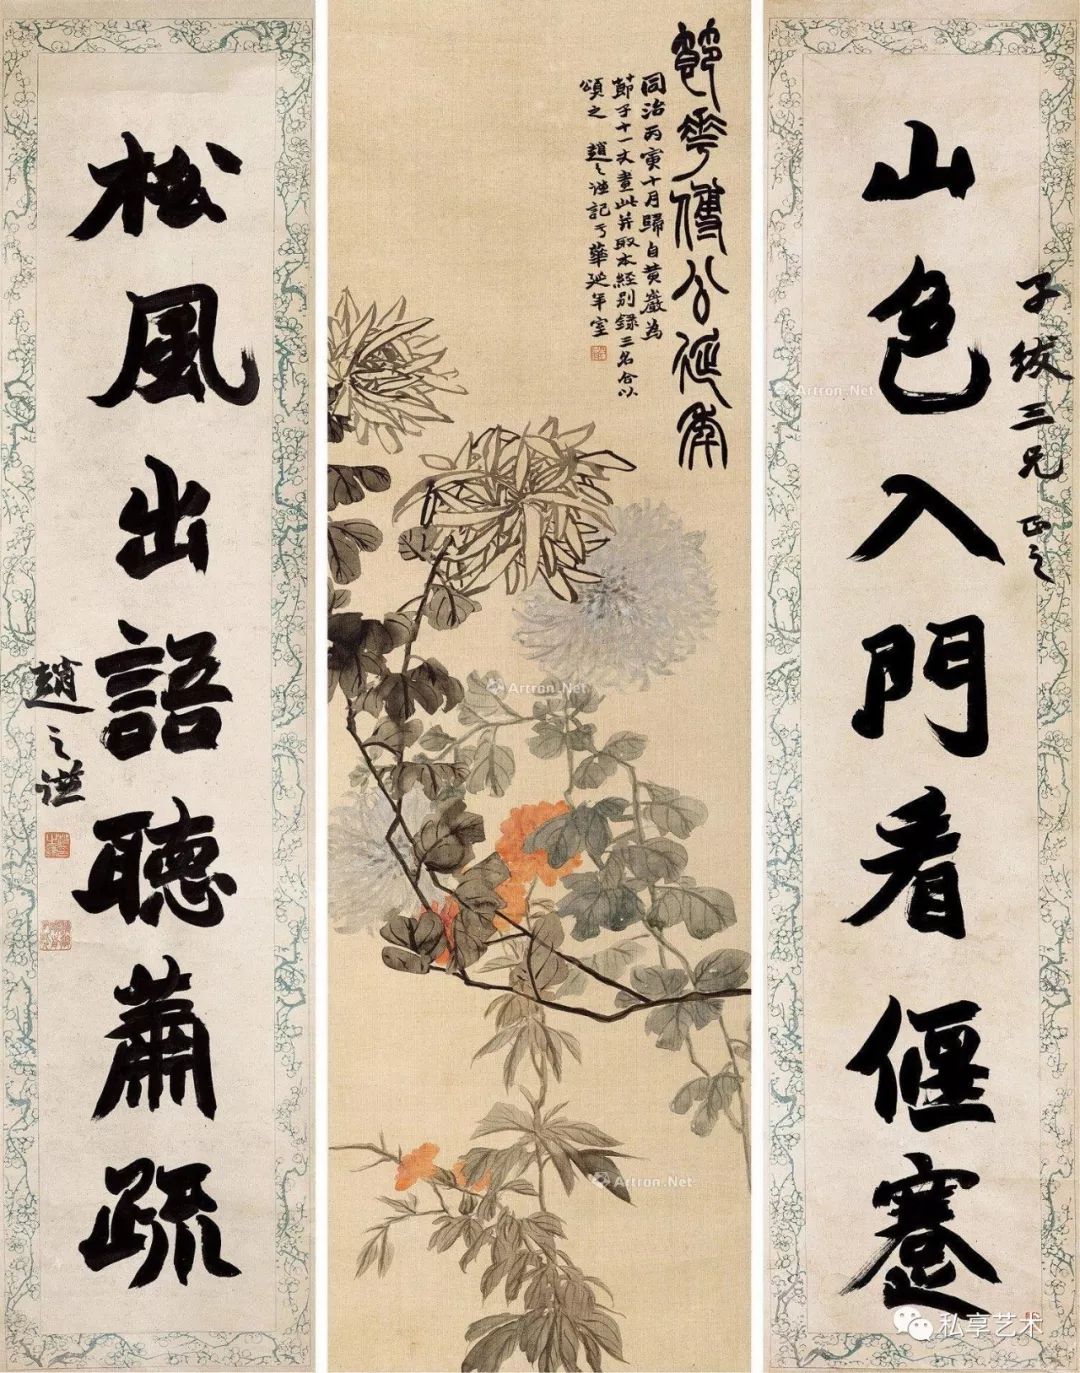 山色入門看偃蹇
子紱三兄正之
節華傅公延年
同治丙寅十月歸自黃巖為
節子十一丈畫此并取本經別錄三名合以
頌之 趙之謙記于華延年室
松風出語聽蕭疏
趙之謙
Artron.Net
Artron.Net
Artron.Net
私享艺术